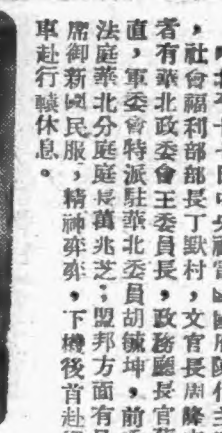 國府陳代主
，社會福利部部長丁默村，文官長周隆
者有華北政委會王委員長，政務廳長官
直，軍委會特派駐華北委員胡毓坤，前
法庭華北分庭庭長萬兆芝；盟邦方面有
席御新國民服，精神弈弈，下機後首赴
車赴行轅休息。